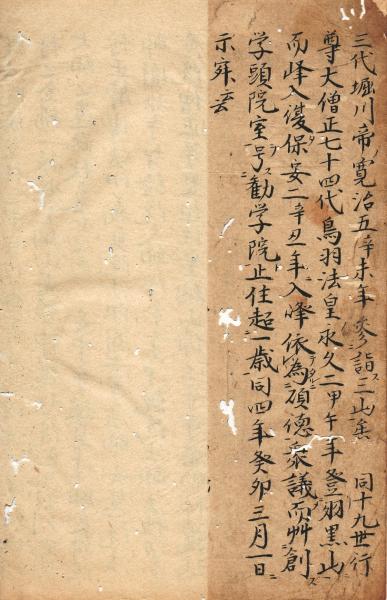 三代堀川帝寛治五辛未年参詣三山矣 同十九世行
尊大僧正七十四代鳥羽法皇永久二甲午年登羽黒山
而峰入後保安二辛丑年入峰依為碩徳衆議而草創ス
学頭院室号ヲス勧学院ニ止住起一歳同四年癸卯三月一日ニ
示寂云